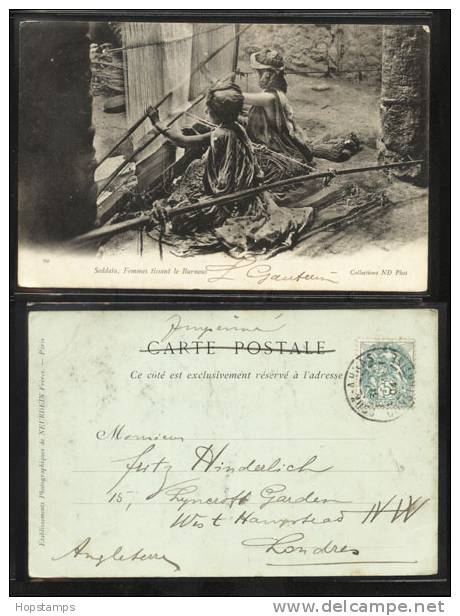 Seddata, Femmes tissant le Burnous
L Gautier
Collections ND Phot
Imprimé
CARTE POSTALE
Ce côté est exclusivement réservé à l'adresse
Etablissements Photographiques de NEURDEIN Frères. — Paris
5
Monsieur
Fritz Hinderlich
15, Lyncroft Garden
West Hampstead NW
Londres
Angleterre
Hopstamps
delcampe.net